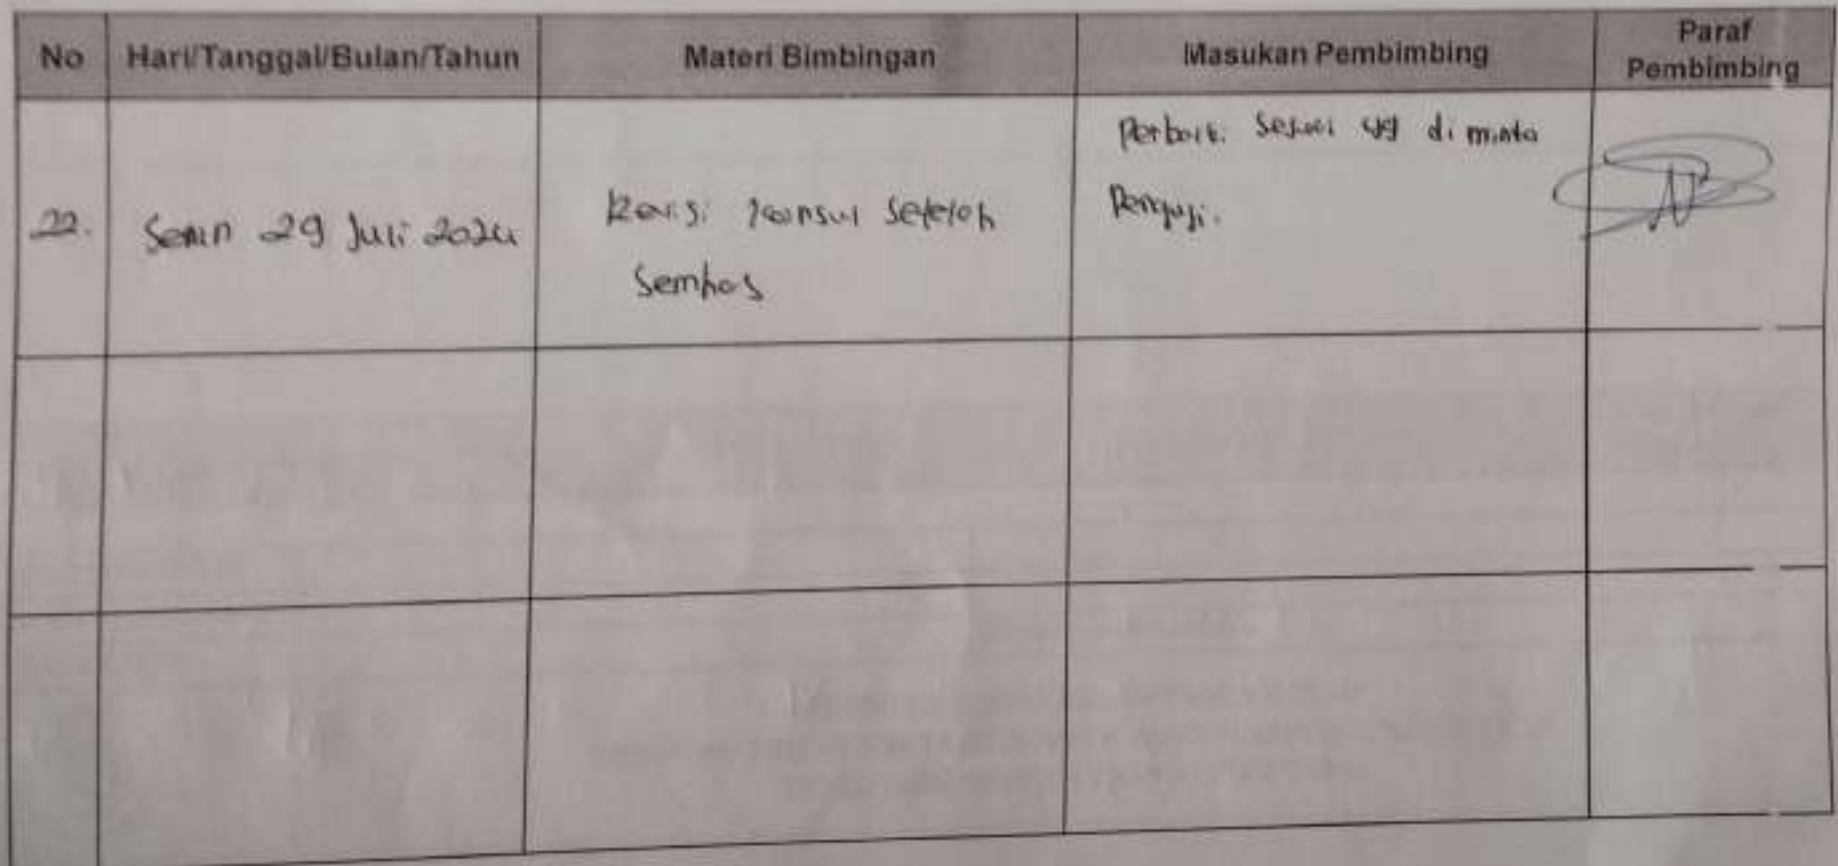 No Hari/Tanggal/Bulan/Tahun Materi Bimbingan Masukan Pembimbing Paraf Pembimbing
22. Senin 29 Juli 2024
Revisi konsul setelah
Semhas
Perbaiki Sesuai yg di minta
Penguji.